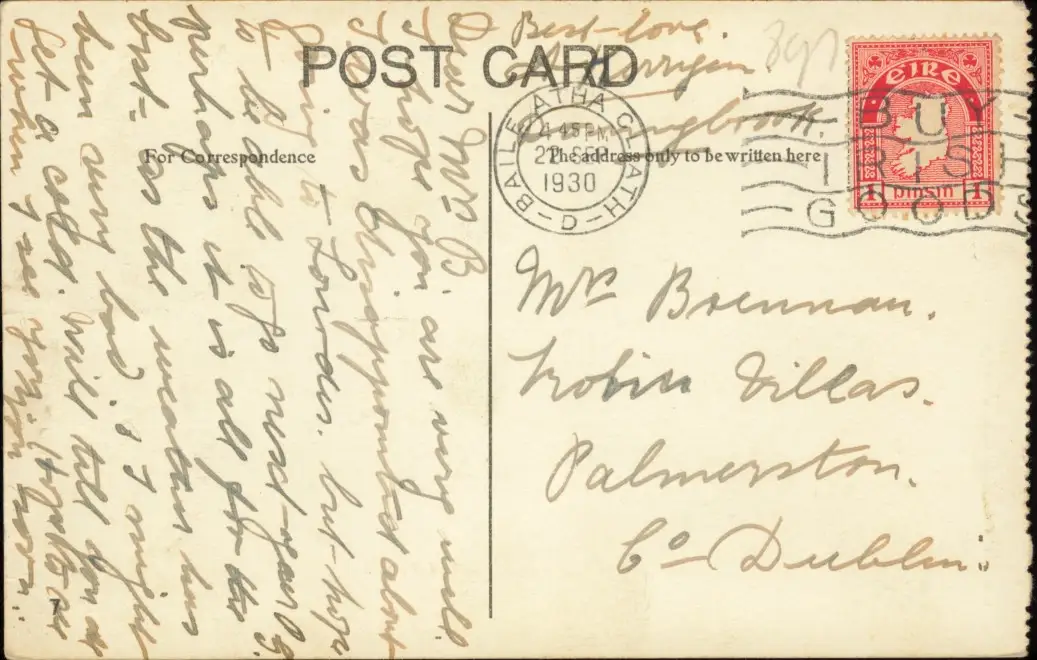 POST CARD
For Correspondence
The address only to be written here
Dear Mrs B.
I hope you are very well.
I was disappointed about
going to Lourdes. but hope
to be able to go next year &
perhaps it is all for the
best - as the weather has
been very bad, & I might
get a cold. Will tell you all
when I see you. Hope to see
you soon.
Best love.
BAILE ATHA CLIATH
4 45 PM
SEP
1930
D
BUY
IRISH
GOODS
éire
1 pinsin 1
Mrs Brennan.
Robin Villas.
Palmerston.
Co Dublin.